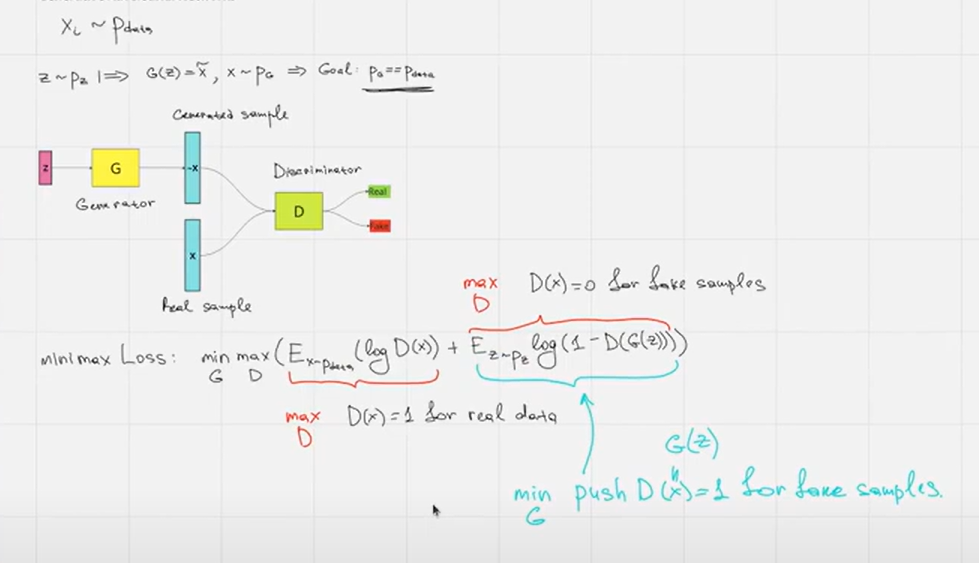 x_i ~ p_data
z ~ p_z |⇒ G(z) = x̃, x ~ p_G ⇒ Goal: p_G == p_data
Generated sample
z
G
~x
Generator
Discriminator
D
Real
Fake
x
Real sample
max D D(x)=0 for fake samples
minimax Loss: min G max D (E_{x~p_data}(log D(x)) + E_{z~p_z} log(1 - D(G(z))))
max D D(x)=1 for real data
G(z)
min G push D(x)=1 for fake samples.